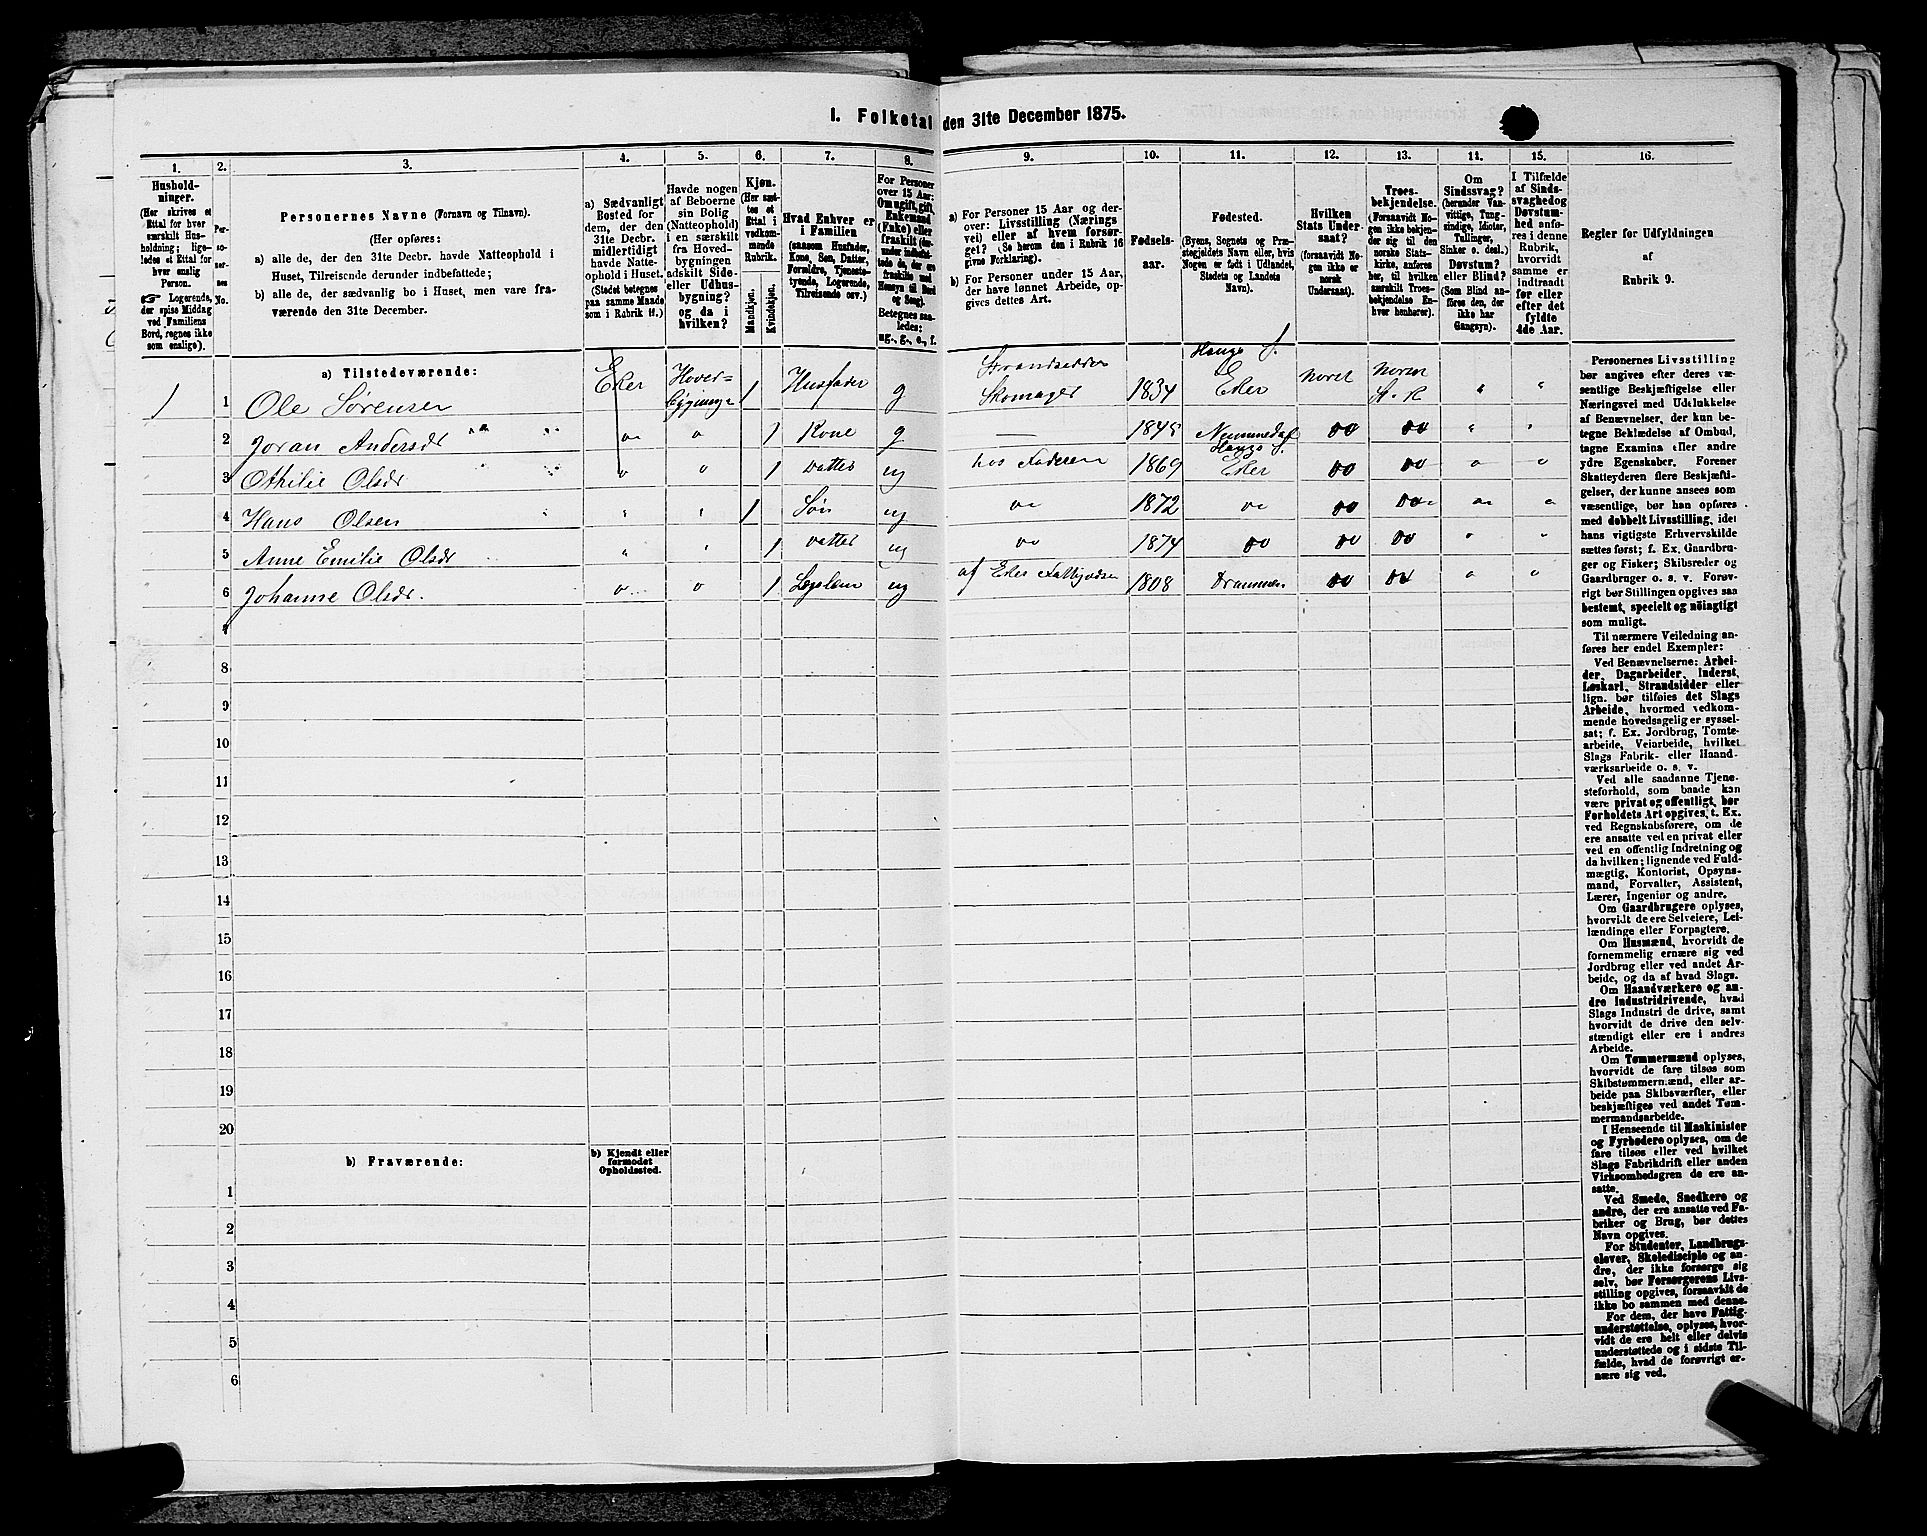 I. Folketal den 31te December 1875.
1. 2. 3. 4. 5. 6. 7. 8. 9. 10. 11. 12. 13. 14. 15. 16.
Hushold-
ninger.
(Her skrives et
Ettal for hver
særskilt Hus-
holdning; lige-
ledes et Ettal for
hver enslig
Person.
☞ Logerende,
der spise Middag
ved Familiens
Bord, regnes ikke
som enslige).
Per-
so-
ner-
nes
No.
Personernes Navne (Fornavn og Tilnavn).
(Her opføres:
a) alle de, der den 31te Decbr. havde Natteophold i
Huset, Tilreisende derunder indbefattede;
b) alle de, der sædvanlig bo i Huset, men vare fra-
værende den 31te December.
a) Sædvanligt
Bosted for
dem, der den
31te Decbr.
midlertidigt
havde Natte-
ophold i Huset.
(Stedet betegnes
paa samme Maade
som i Rubrik 11.)
Havde nogen
af Beboerne
sin Bolig
(Natteophold)
i en særskilt
fra Hoved-
bygningen
adskilt Side-
eller Udhus-
bygning?
og da i
hvilken?
Kjøn.
(Her sæt-
tes et
Ettal i
vedkom-
mende
Rubrik.
Mandkjøn.
Kvindekjøn.
Hvad Enhver er
i Familien
(saasom Husfader,
Kone, Søn, Datter,
Forældre, Tjeneste-
tyende, Logerende,
Tilreisende osv.)
For Personer
over 15 Aar:
Om ugift, gift,
Enkemand
(Enke) eller
fraskilt
Betegnes saa-
ledes:
ug., g., e., f.
a) For Personer 15 Aar og der-
over: Livsstilling (Nærings
vei) eller af hvem forsør-
get? (Se herom den i Rubrik 16
givne Forklaring).
b) For Personer under 15 Aar,
der have lønnet Arbeide, op-
gives dettes Art.
Fødsels-
aar.
Fødested.
(Byens, Sognets og Præ-
stegjeldets Navn eller, hvis
Nogen er født i Udlandet,
Stedets og Landets
Navn).
Hvilken
Stats Under-
saat?
(forsaavidt No-
gen ikke er
norsk
Undersaat).
Troes-
bekjendelse.
(Forsaavidt No-
gen ikke bekjen-
der sig til den
norske Stats-
kirke, anføres
her, til hvilken
særskilt Troes-
bekjendelse En-
hver henhører).
Om
Sindssvag?
(herunder Van-
vittige, Tung-
sindige, Idioter,
Tullinger,
Sinker o. desl.)
Døvstum?
eller Blind?
(Som Blind an-
føres den, der
ikke har
Gangsyn).
I Tilfælde
af Sinds-
svaghed og
Døvstum-
hed anfø-
res i denne
Rubrik,
hvorvidt
samme er
indtraadt
før eller
efter det
fyldte
4de Aar.
Regler for Udfyldningen
af
Rubrik 9.
a) Tilstedeværende:
1 1 Ole Sørensen Eker Hoved- bygning 1 Husfader g Skomager 1834 Hougs S. Eker norsk norsk
2 Joran Andersdr 1 Kone g 1845 Nummedal
3 Othilie Olsdr 1 Datter ug hos Faderen 1869 Hougs S. Eker
4 Hans Olsen 1 Søn ug 1872
5 Anne Emilie Olsdr 1 Datter ug 1874
6 Johanne Olsdr. 1 Lægslem ug af Eker 1808 Drammen
7
8
9
10
11
12
13
14
15
16
17
18
19
20
b) Fraværende:
b) Kjendt eller
formodet
Opholdssted.
1
2
3
4
5
6
Personernes Livsstilling
bør angives efter deres væ-
sentlige Beskjæftigelse eller
Næringsvei med Udelukkelse
af Benævnelser, der kun be-
tegne Beklædelse af Ombud,
tagne Examina eller andre
ydre Egenskaber. Forener
Skatteyderen flere Beskjæfti-
gelser, der kunne ansees som
væsentlige, bør han opføres
med dobbelt Livsstilling, idet
hans vigtigste Erhvervskilde
sættes først; f. Ex. Gaardbru-
ger og Fisker; Skibsreder og
Gaardbruger o. s. v. Forøv-
rigt bør Stillingen opgives saa
bestemt, specielt og nøiagtigt
som muligt.
Til nærmere Veiledning an-
føres her endel Exempler:
Ved Benævnelserne: Arbei-
der, Dagarbeider, Inderst,
Løskarl, Strandsidder eller
lign. bør tilføies det Slags
Arbeide, hvormed vedkom-
mende hovedsagelig er syssel-
sat; f. Ex. Jordbrug, Tomte-
arbeide, Veiarbeide, hvilket
Slags Fabrik- eller Haand-
værksarbeide o. s. v.
Ved alle saadanne Tjene-
steforhold, som baade kan
være privat og offentligt, bør
Forholdets Art opgives, t. Ex.
ved Regnskabsførere, om de
ere ansatte ved en privat eller
ved en offentlig Indretning og
da hvilken; lignende ved Fuld-
mægtig, Kontorist, Opsyns-
mand, Forvalter, Assistent,
Lærer, Ingeniør og andre.
Om Gaardbrugere oplyses,
hvorvidt de ere Selveiere, Lei-
lændinge eller Forpagtere.
Om Husmænd, hvorvidt de
fornemmelig ernære sig ved
Jordbrug eller ved andet Ar-
beide, og da af hvad Slags.
Om Haandværkere og an-
dre Industridrivende, hvad
Slags Industri de drive, samt
hvorvidt de drive den selv-
stændigt eller ere i andres
Arbeide.
Om Tømmermænd oplyses,
hvorvidt de fare tilsøs som
Skibstømmermænd, eller ar-
beide paa Skibsværfter, eller
beskjæftiges ved andet Tøm-
mermandsarbeide.
I Henseende til Maskinister
og Fyrbødere oplyses, om de
fare tilsøs eller ved hvilket
Slags Fabrikdrift eller anden
Virksomhedsgren de ere an-
satte.
Ved Smede, Snedkere og
andre, der ere ansatte ved Fa-
briker og Brug, bør dettes
Navn opgives.
For Studenter, Landbrugs-
elever, Skoledisciple og an-
dre, der ikke forsørge sig
selv, bør Forsørgerens Livs-
stilling opgives, forsaavidt de
ikke bo sammen med denne.
For dem, der have Fattig-
understøttelse, oplyses, hvor-
vidt de ere helt eller delvis
understøttede og i sidste Til-
fælde, hvad de forøvrigt er-
nære sig ved.